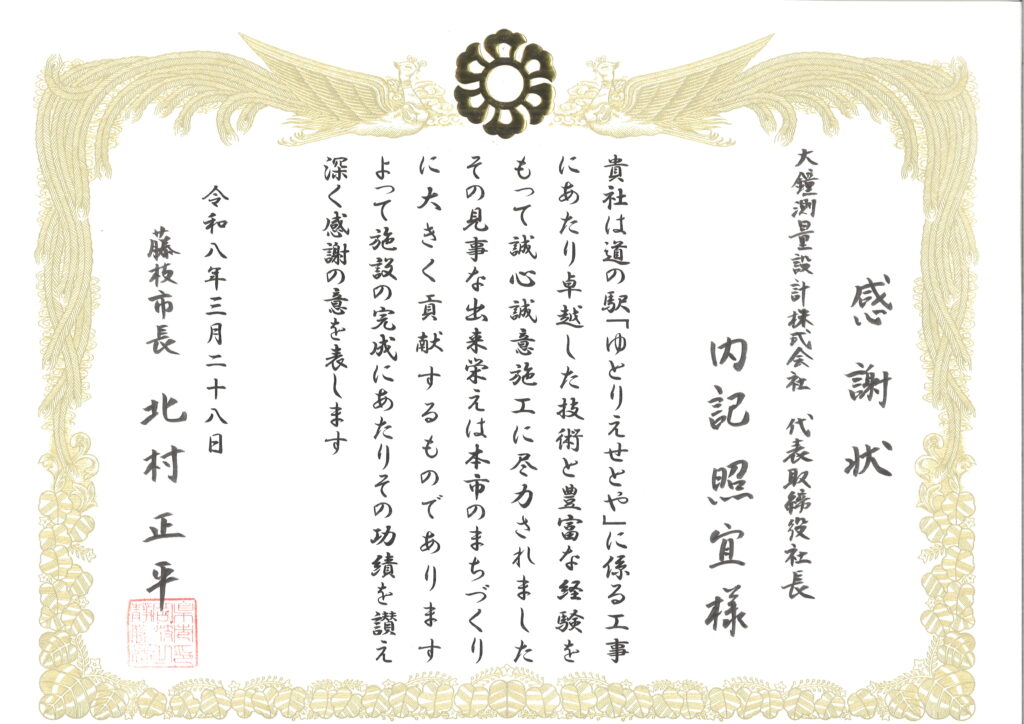 感謝状
大鐘測量設計株式会社 代表取締役社長
内記照宜様
貴社は道の駅「ゆとりえせとや」に係る工事
にあたり卓越した技術と豊富な経験を
もって誠心誠意施工に尽力されました
その見事な出来栄えは本市のまちづくり
に大きく貢献するものであります
よって施設の完成にあたりその功績を讃え
深く感謝の意を表します
令和八年三月二十八日
藤枝市長 北村正平